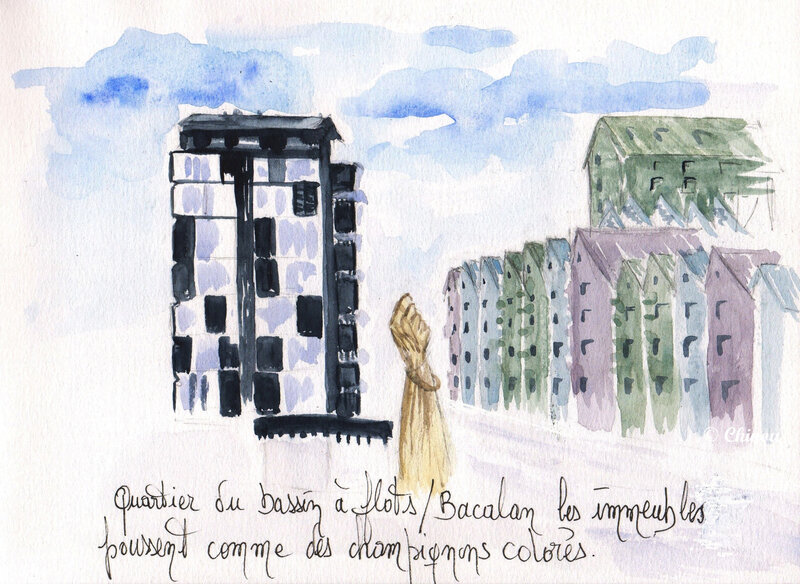 © Chipy
quartier du bassin à flots/Bacalan les immeubles
poussent comme des champignons colorés.